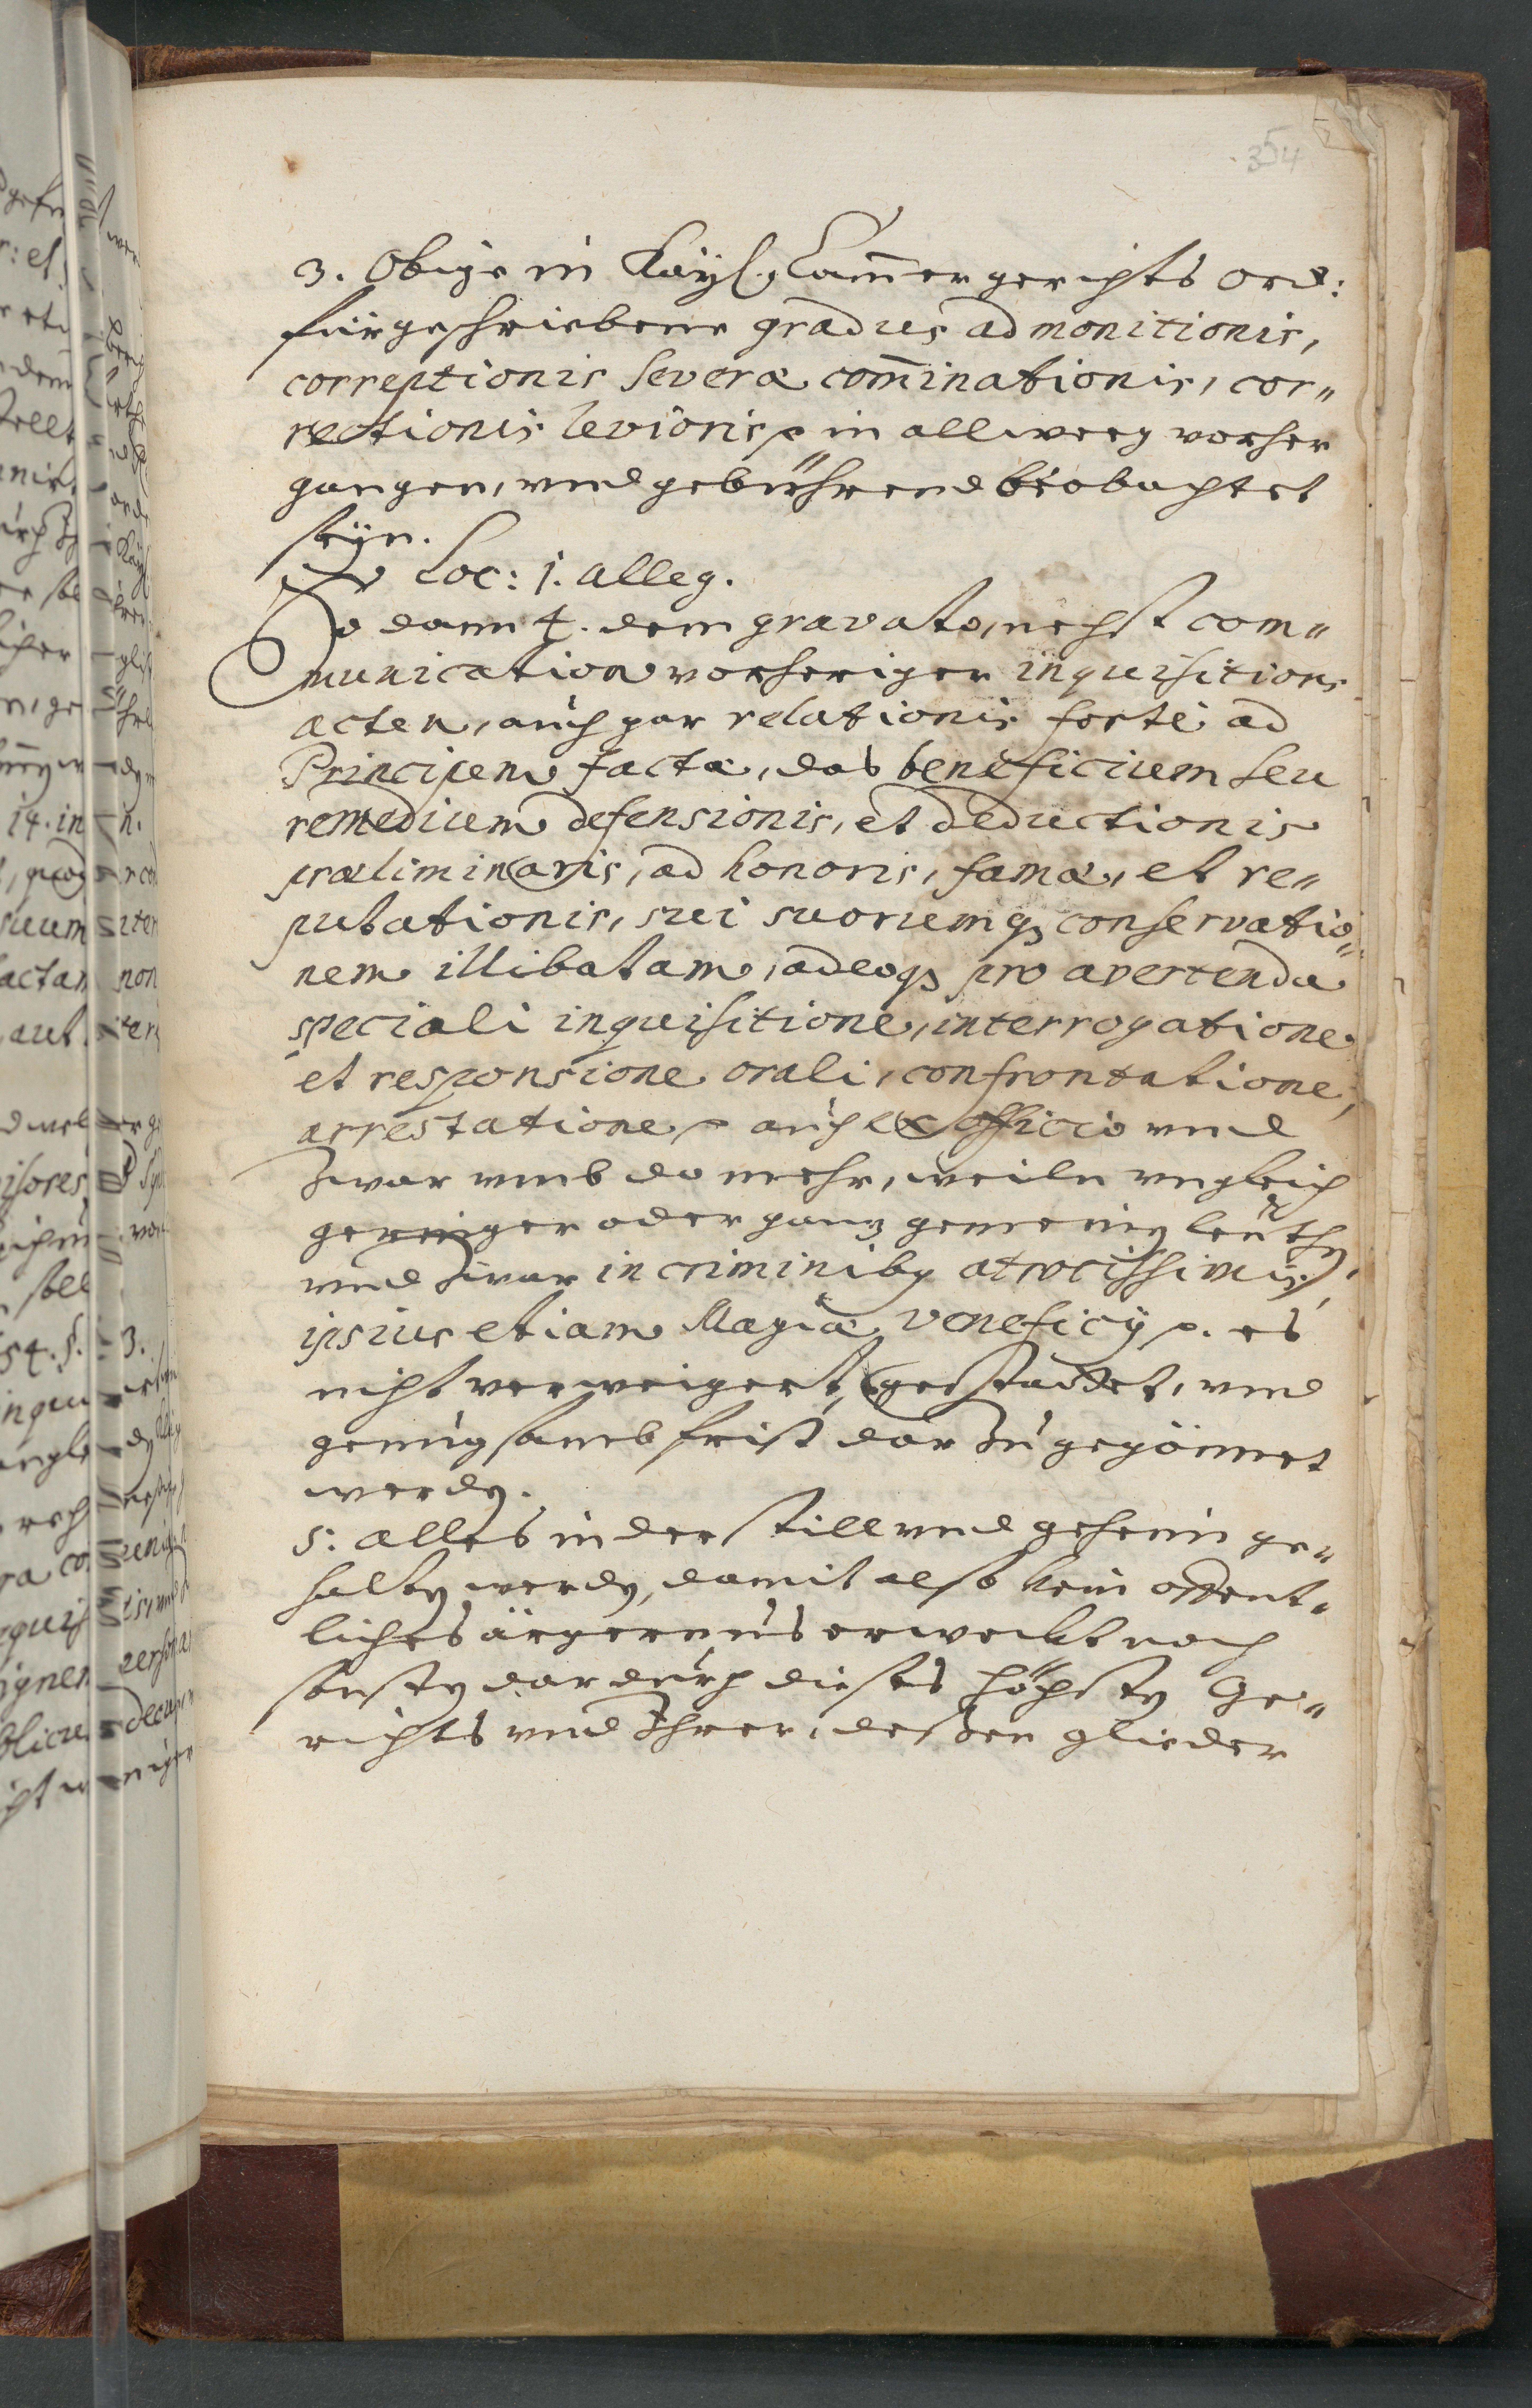 354
3. Obige in Kaÿs. Cam̄ergerichts Ord:
fürgeschriebene gradus admonitionis,
correptionis severæ com̄inationis, cor„
rectionis levioris p in allweeg vorher
gangen, vnd gebührend beobachtet
seÿn.
Loc: 1. alleg.
So dann 4. dem gravato, nechst com„
munication vorheriger inquisitions
acten, auch gar relationis forte ad
Principem factæ, das beneficium seu
remedium defensionis, et deductionis
præliminaris, ad honoris, famæ, et re„
putationis, sui suorumq; conservatio„
nem illibatam, adeoq; pro avertenda
speciali inquisitione, interrogatione
et responsione orali, confrontatione,
arrestatione p auch ex officio vnd
zwar vmb do mehr, weiln vngleich
geringer oder ganz gemeinen leuthen
vnd zwar in criminibus atrocissimis,
ipsius etiam Magiæ, veneficÿ p. es
nicht verweigert, gestattet, vnd
genugsamb frist darzu gegönnet
werden.
5. alles in der still vnd geheim ge„
halten werden, damit also kein offent„
liches ärgernus erweckt noch
sonsten dardurch dieses höchsten Ge„
richts vnd Ihrer, dessen glieder